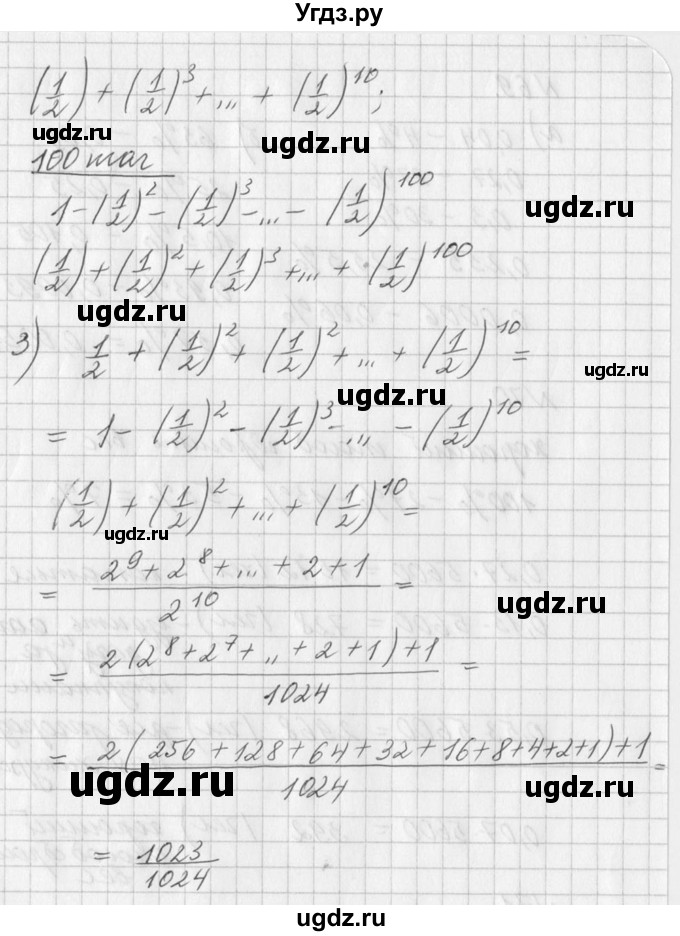 Угдз.ру
(1/2) + (1/2)^3 + ... + (1/2)^10;
ugdz.ru
ugdz.ru
100 шаг
1 - (1/2)^2 - (1/2)^3 - ... - (1/2)^100
ugdz.ru
(1/2) + (1/2)^2 + (1/2)^3 + ... + (1/2)^100
ugdz.ru
3) 1/2 + (1/2)^2 + (1/2)^2 + ... + (1/2)^10 =
ugdz.ru
ugdz.ru
= 1 - (1/2)^2 - (1/2)^3 - ... - (1/2)^10
(1/2) + (1/2)^2 + ... + (1/2)^10 =
ugdz.ru
= (2^9 + 2^8 + ... + 2 + 1)/2^10 =
ugdz.ru
= (2(2^8 + 2^7 + .. + 2 + 1) + 1)/1024 =
= (2(256 + 128 + 64 + 32 + 16 + 8 + 4 + 2 + 1) + 1)/1024 =
ugdz.ru
ugdz.ru
= 1023/1024
ugdz.ru